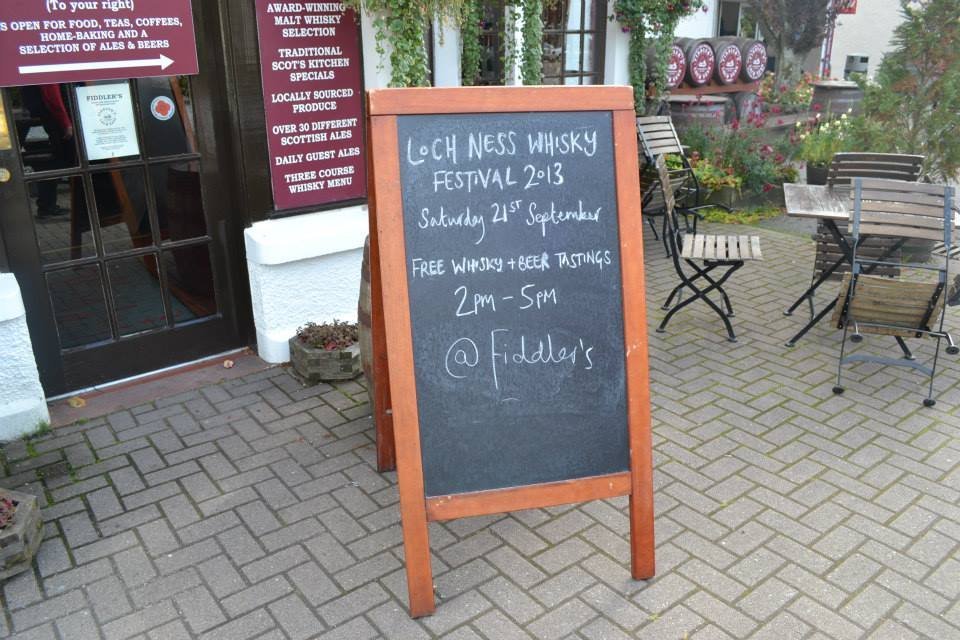 (To your right)
IS OPEN FOR FOOD, TEAS, COFFEES,
HOME-BAKING AND A
SELECTION OF ALES & BEERS
AWARD-WINNING
MALT WHISKY
SELECTION
TRADITIONAL
SCOT'S KITCHEN
SPECIALS
LOCALLY SOURCED
PRODUCE
OVER 30 DIFFERENT
SCOTTISH ALES
DAILY GUEST ALES
THREE COURSE
WHISKY MENU
FIDDLER'S
LOCH NESS WHISKY
FESTIVAL 2013
Saturday 21ST September
FREE WHISKY + BEER TASTINGS
2PM - 5PM
@ Fiddler's